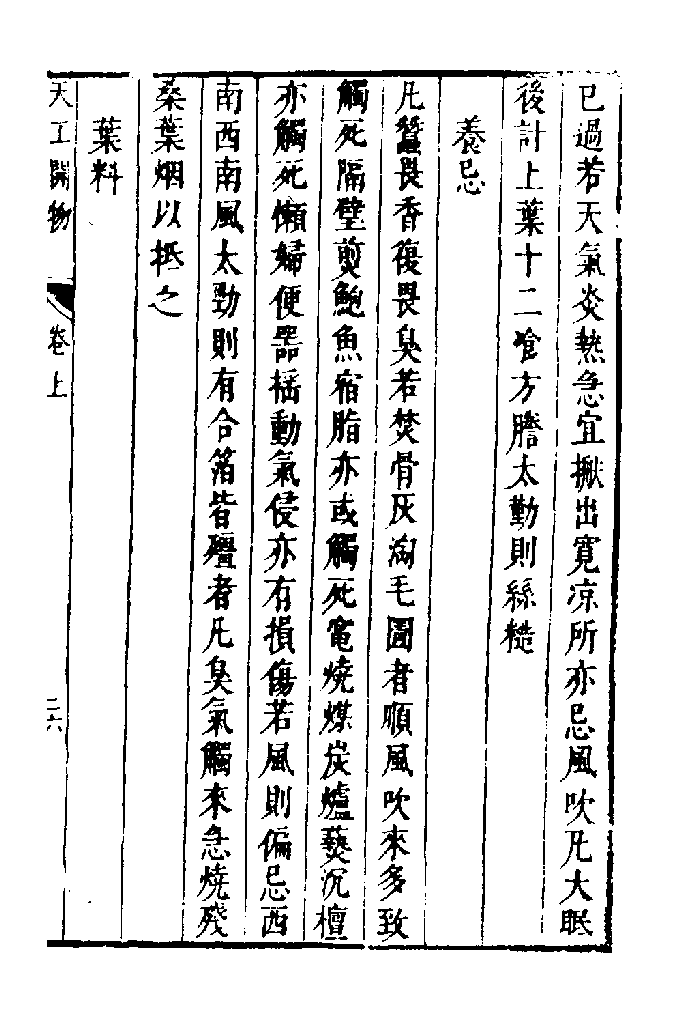 已過若天氣炎熱急宜搬出寬凉所亦忌風吹凡大眠
後計上葉十二飡方謄太勤則絲糙
養忌
凡蠶畏香復畏臭若焚骨灰淘毛圊者順風吹來多致
觸死隔壁煎鮑魚宿脂亦或觸死竈燒煤炭爐爇沉檀
亦觸死懶婦便器搖動氣侵亦有損傷若風則偏忌西
南西南風太勁則有合箔皆殭者凡臭氣觸來急燒殘
桑葉烟以抵之
葉料
天工開物 卷上 二六